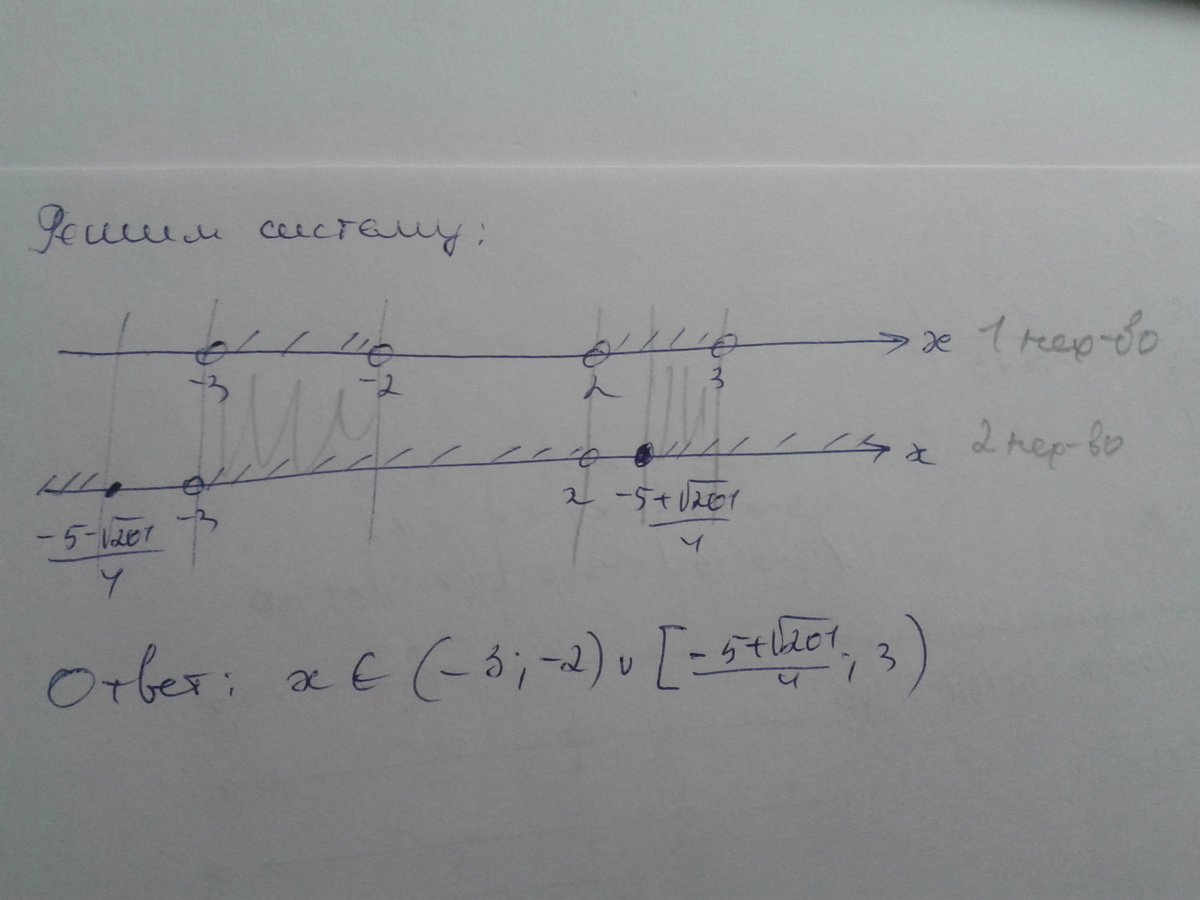 Решим систему:
x 1 нер-во
-3 -2 2 3
x 2 нер-во
-3 2
-5-√201/4 -5+√201/4
Ответ: x ∈ (-3; -2) ∪ [-5+√201/4; 3)